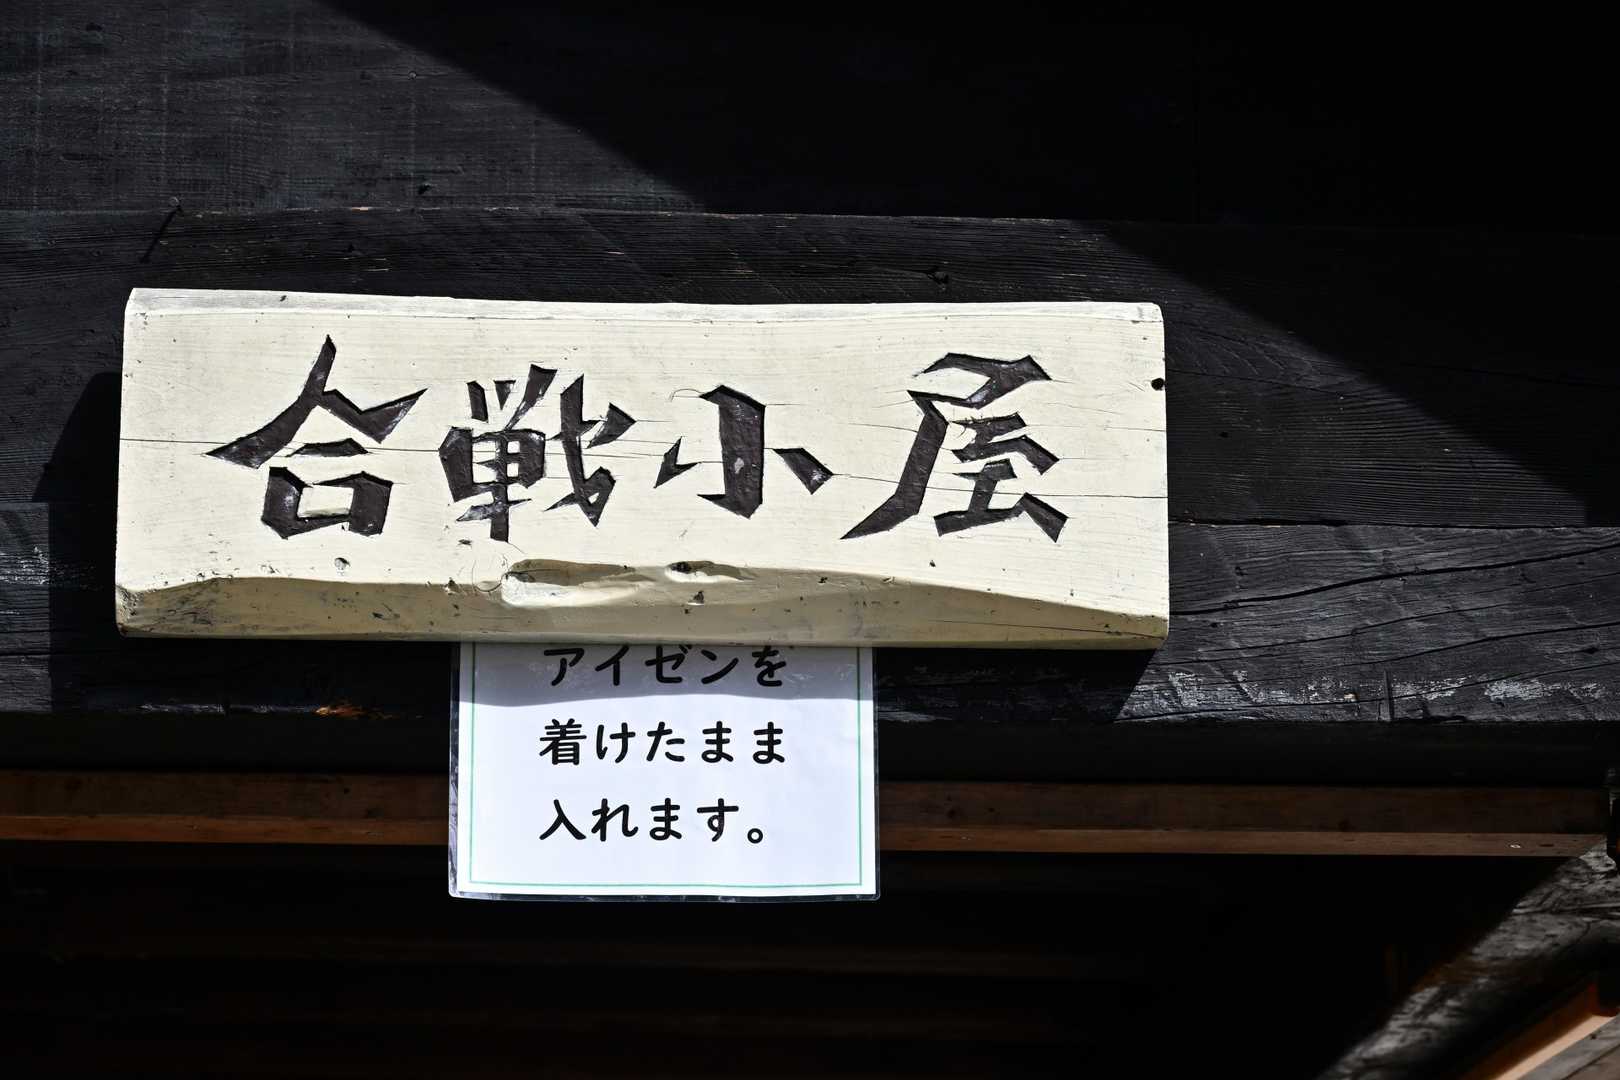 合戦小屋
アイゼンを
着けたまま
入れます。